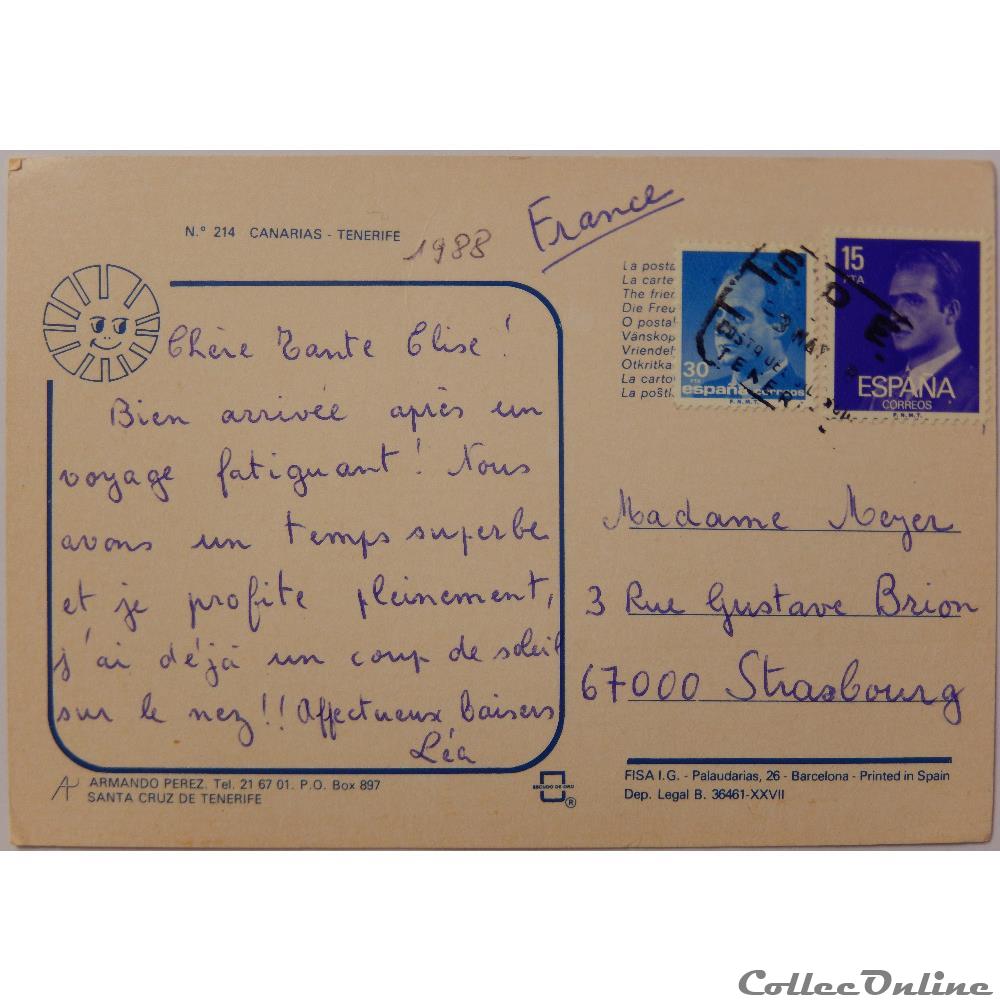 N.º 214 CANARIAS - TENERIFE
1988
France
Chère Tante Elise !
Bien arrivée après un
voyage fatiguant ! Nous
avons un temps superbe
et je profite pleinement,
j'ai déjà un coup de soleil
sur le nez !! Affectueux baisers
Léa
La posta
La carte
The frien
Die Freu
O postal
Vänskop
Vriendel
Otkritka
La carto
La pošti
30
PTA
españa correos
F.N.M.T.
15
PTA
ESPAÑA
CORREOS
F.N.M.T.
MAY
TENER
Madame Meyer
3 Rue Gustave Brion
67000 Strasbourg
ARMANDO PEREZ. Tel. 21 67 01. P.O. Box 897
SANTA CRUZ DE TENERIFE
ESCUDO DE ORO
®
FISA I.G. - Palaudarias, 26 - Barcelona - Printed in Spain
Dep. Legal B. 36461-XXVII
CollecOnline